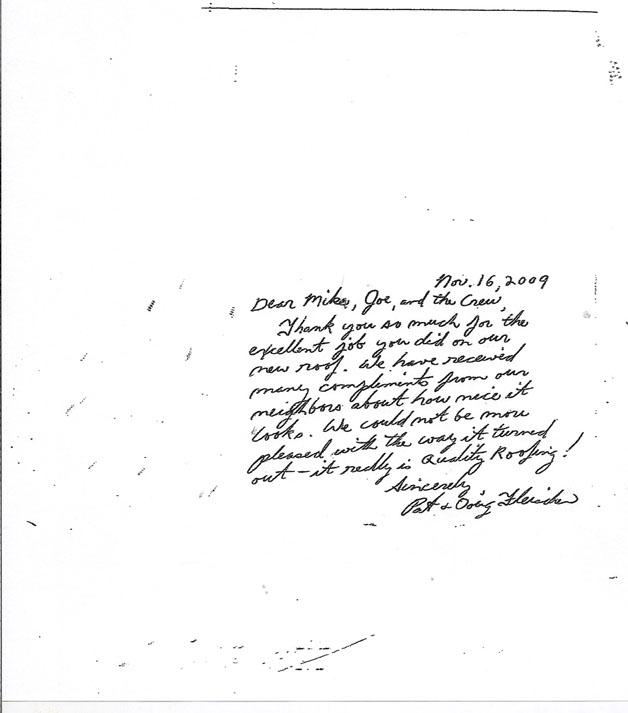 Nov. 16, 2009
Dear Mike, Joe, and the Crew,
Thank you so much for the
excellent job you did on our
new roof. We have received
many compliments from our
neighbors about how nice it
looks. We could not be more
pleased with the way it turned
out – it really is Quality Roofing!
Sincerely,
Pat & Doug